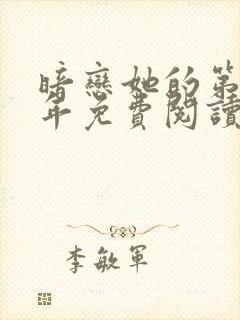 暗戀她的第
年免費閱讀
李敏軍